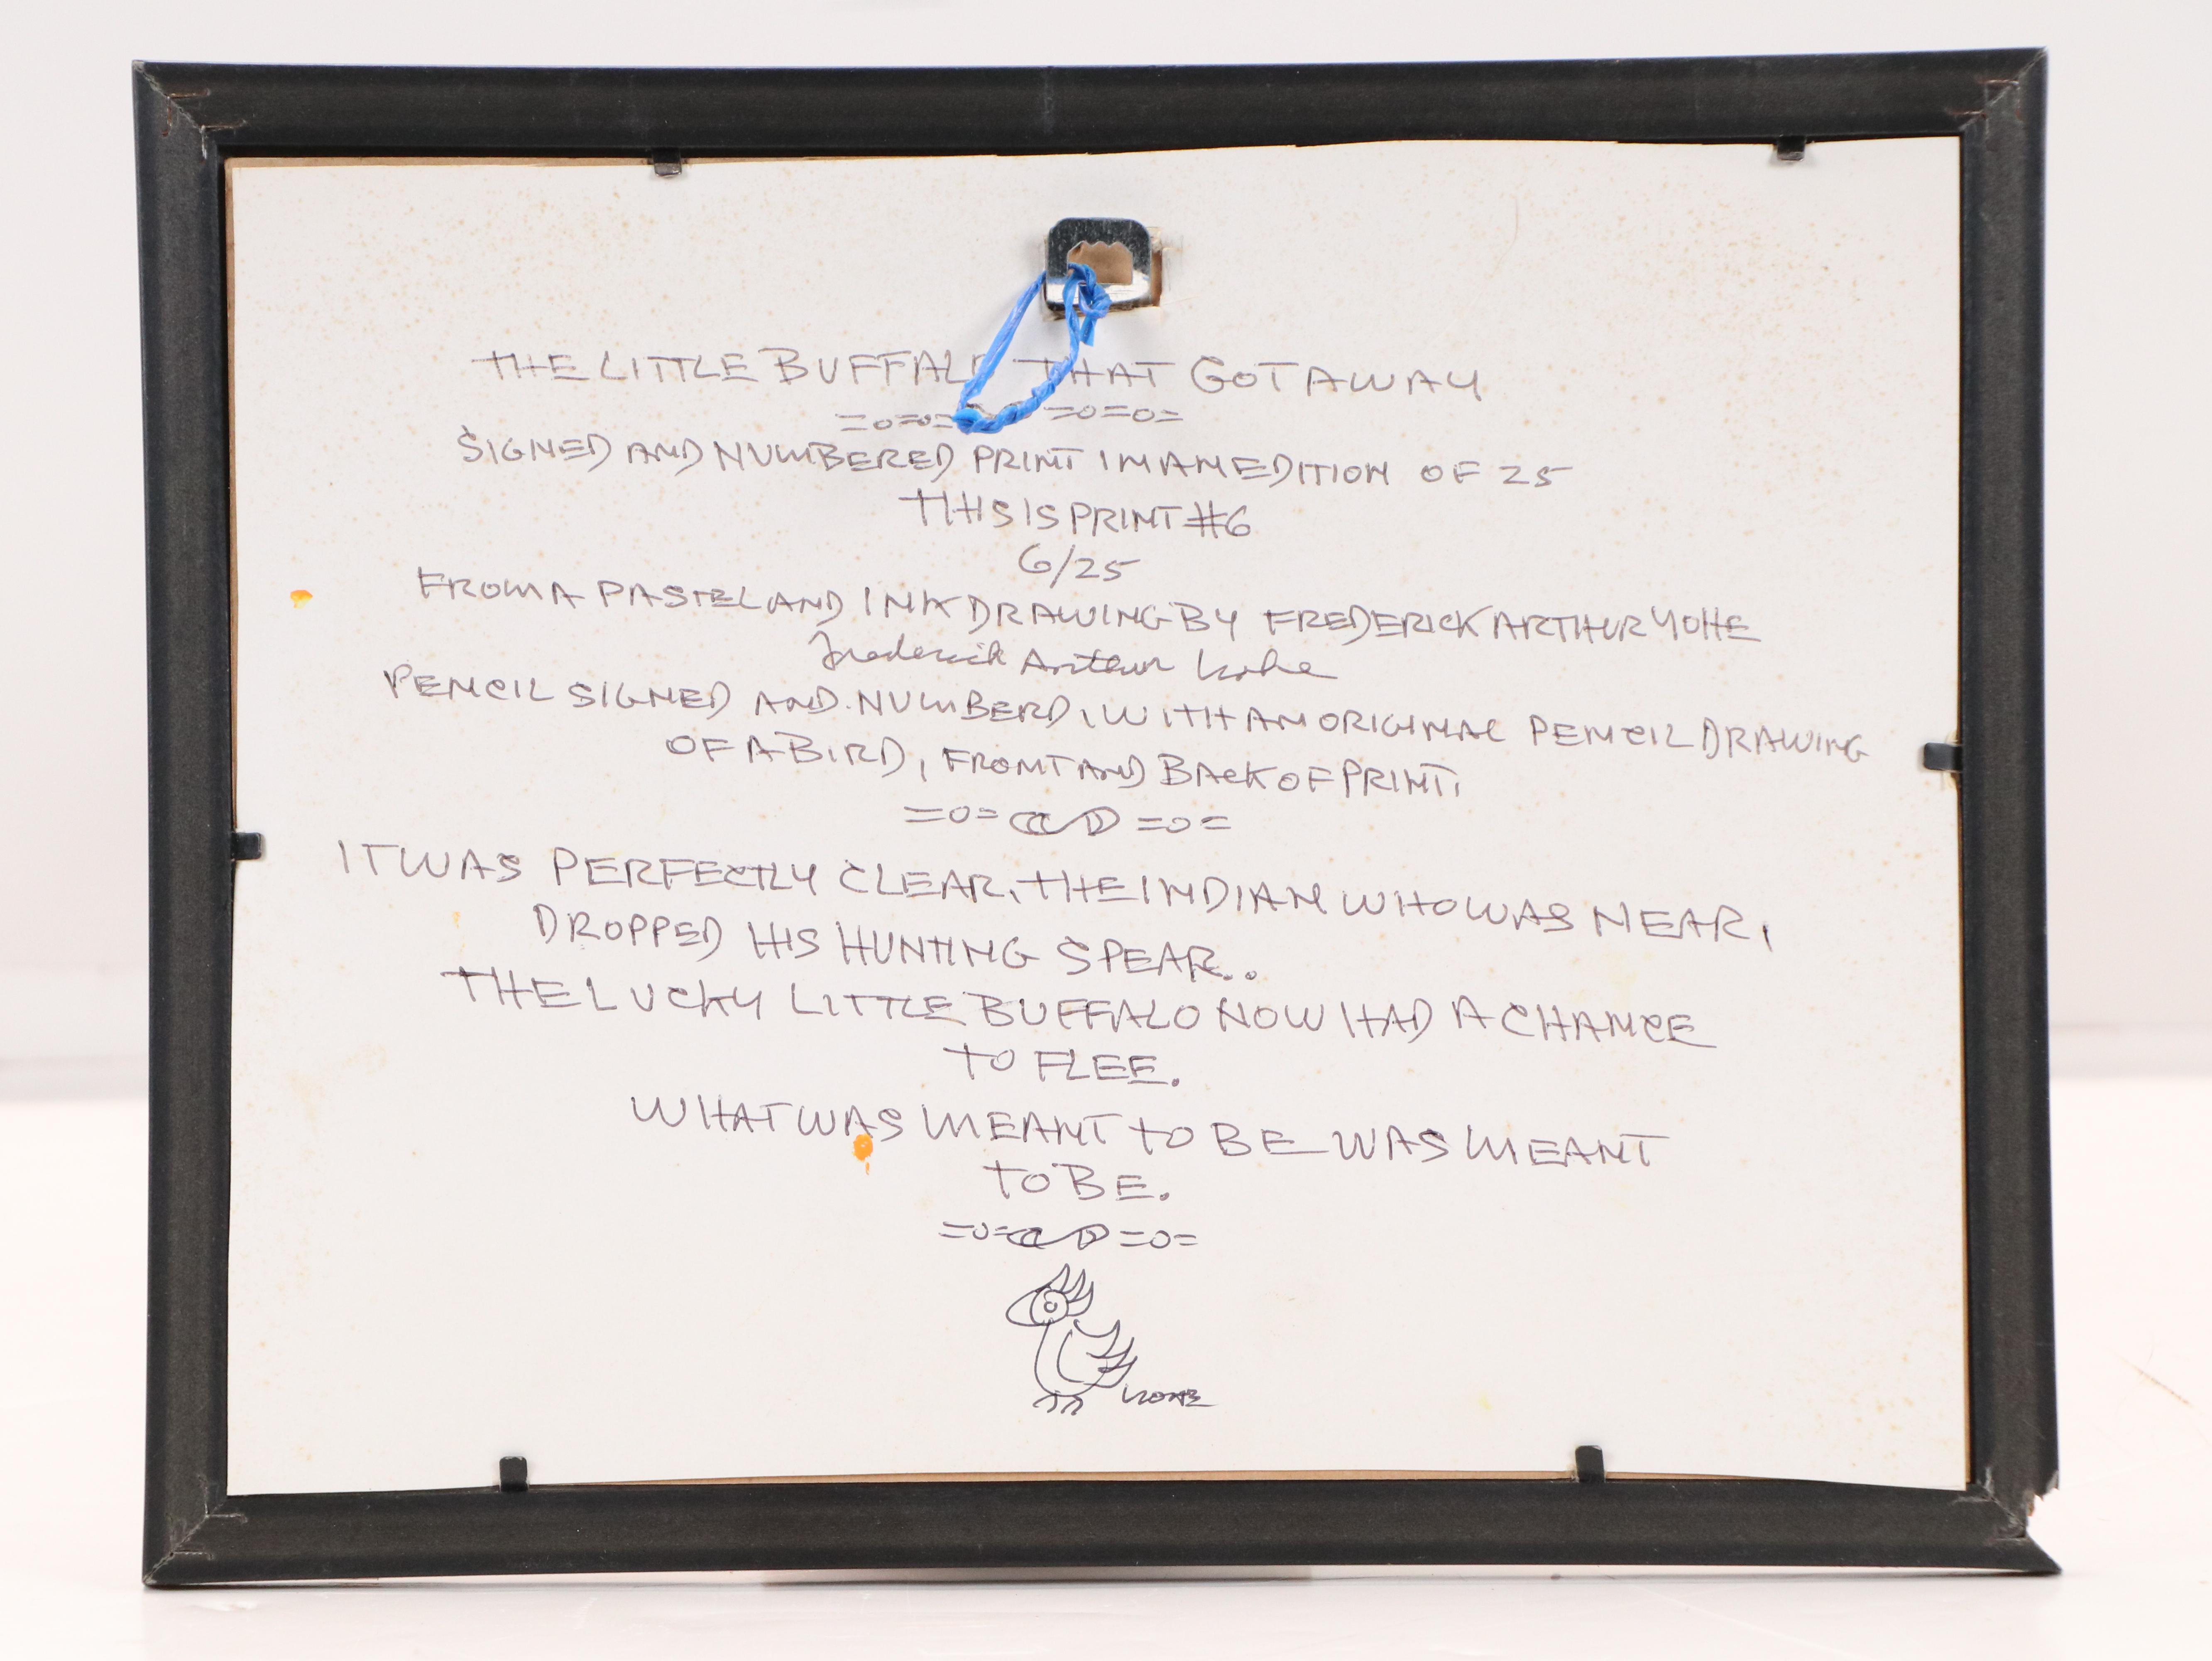 THE LITTLE BUFFALO THAT GOT AWAY
=o=o= =o=o=
SIGNED AND NUMBERED PRINT IN AN EDITION OF 25
THIS IS PRINT #6
6/25
FROM A PASTEL AND INK DRAWING BY FREDERICK ARTHUR YOHE
Frederick Arthur Yohe
PENCIL SIGNED AND NUMBERD, WITH AN ORIGINAL PENCIL DRAWING
OF A BIRD, FRONT AND BACK OF PRINT.
IT WAS PERFECTLY CLEAR, THE INDIAN WHO WAS NEAR,
DROPPED HIS HUNTING SPEAR..
THE LUCKY LITTLE BUFFALO NOW HAD A CHANCE
TO FLEE.
WHAT WAS MEANT TO BE WAS MEANT
TO BE.
YOHE